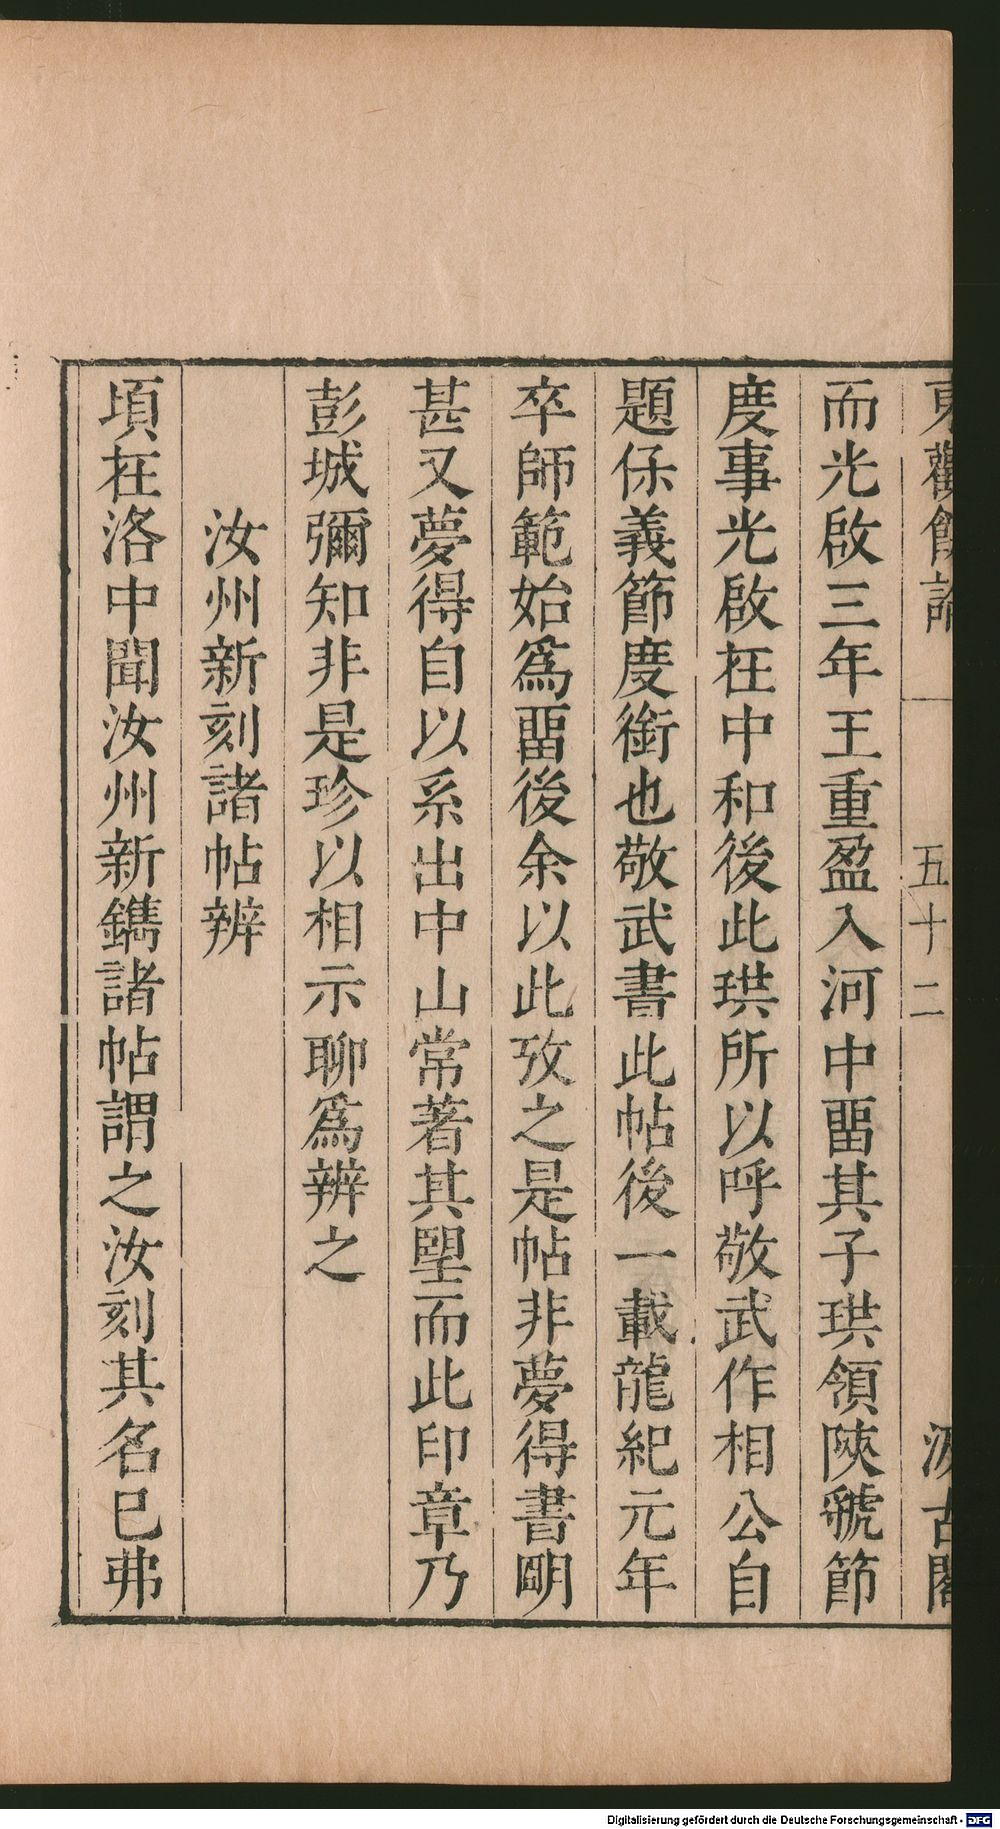 東觀餘論 五十二 汲古閣
而光啟三年王重盈入河中畱其子珙領陝虢節
度事光啟在中和後此珙所以呼敬武作相公自
題係義節度銜也敬武書此帖後一載龍紀元年
卒師範始爲畱後余以此攷之是帖非夢得書明
甚又夢得自以系出中山常著其朢而此印章乃
彭城彌知非是珍以相示聊爲辨之
汝州新刻諸帖辨
頃在洛中聞汝州新鐫諸帖謂之汝刻其名已弗
Digitalisierung gefördert durch die Deutsche Forschungsgemeinschaft - DFG